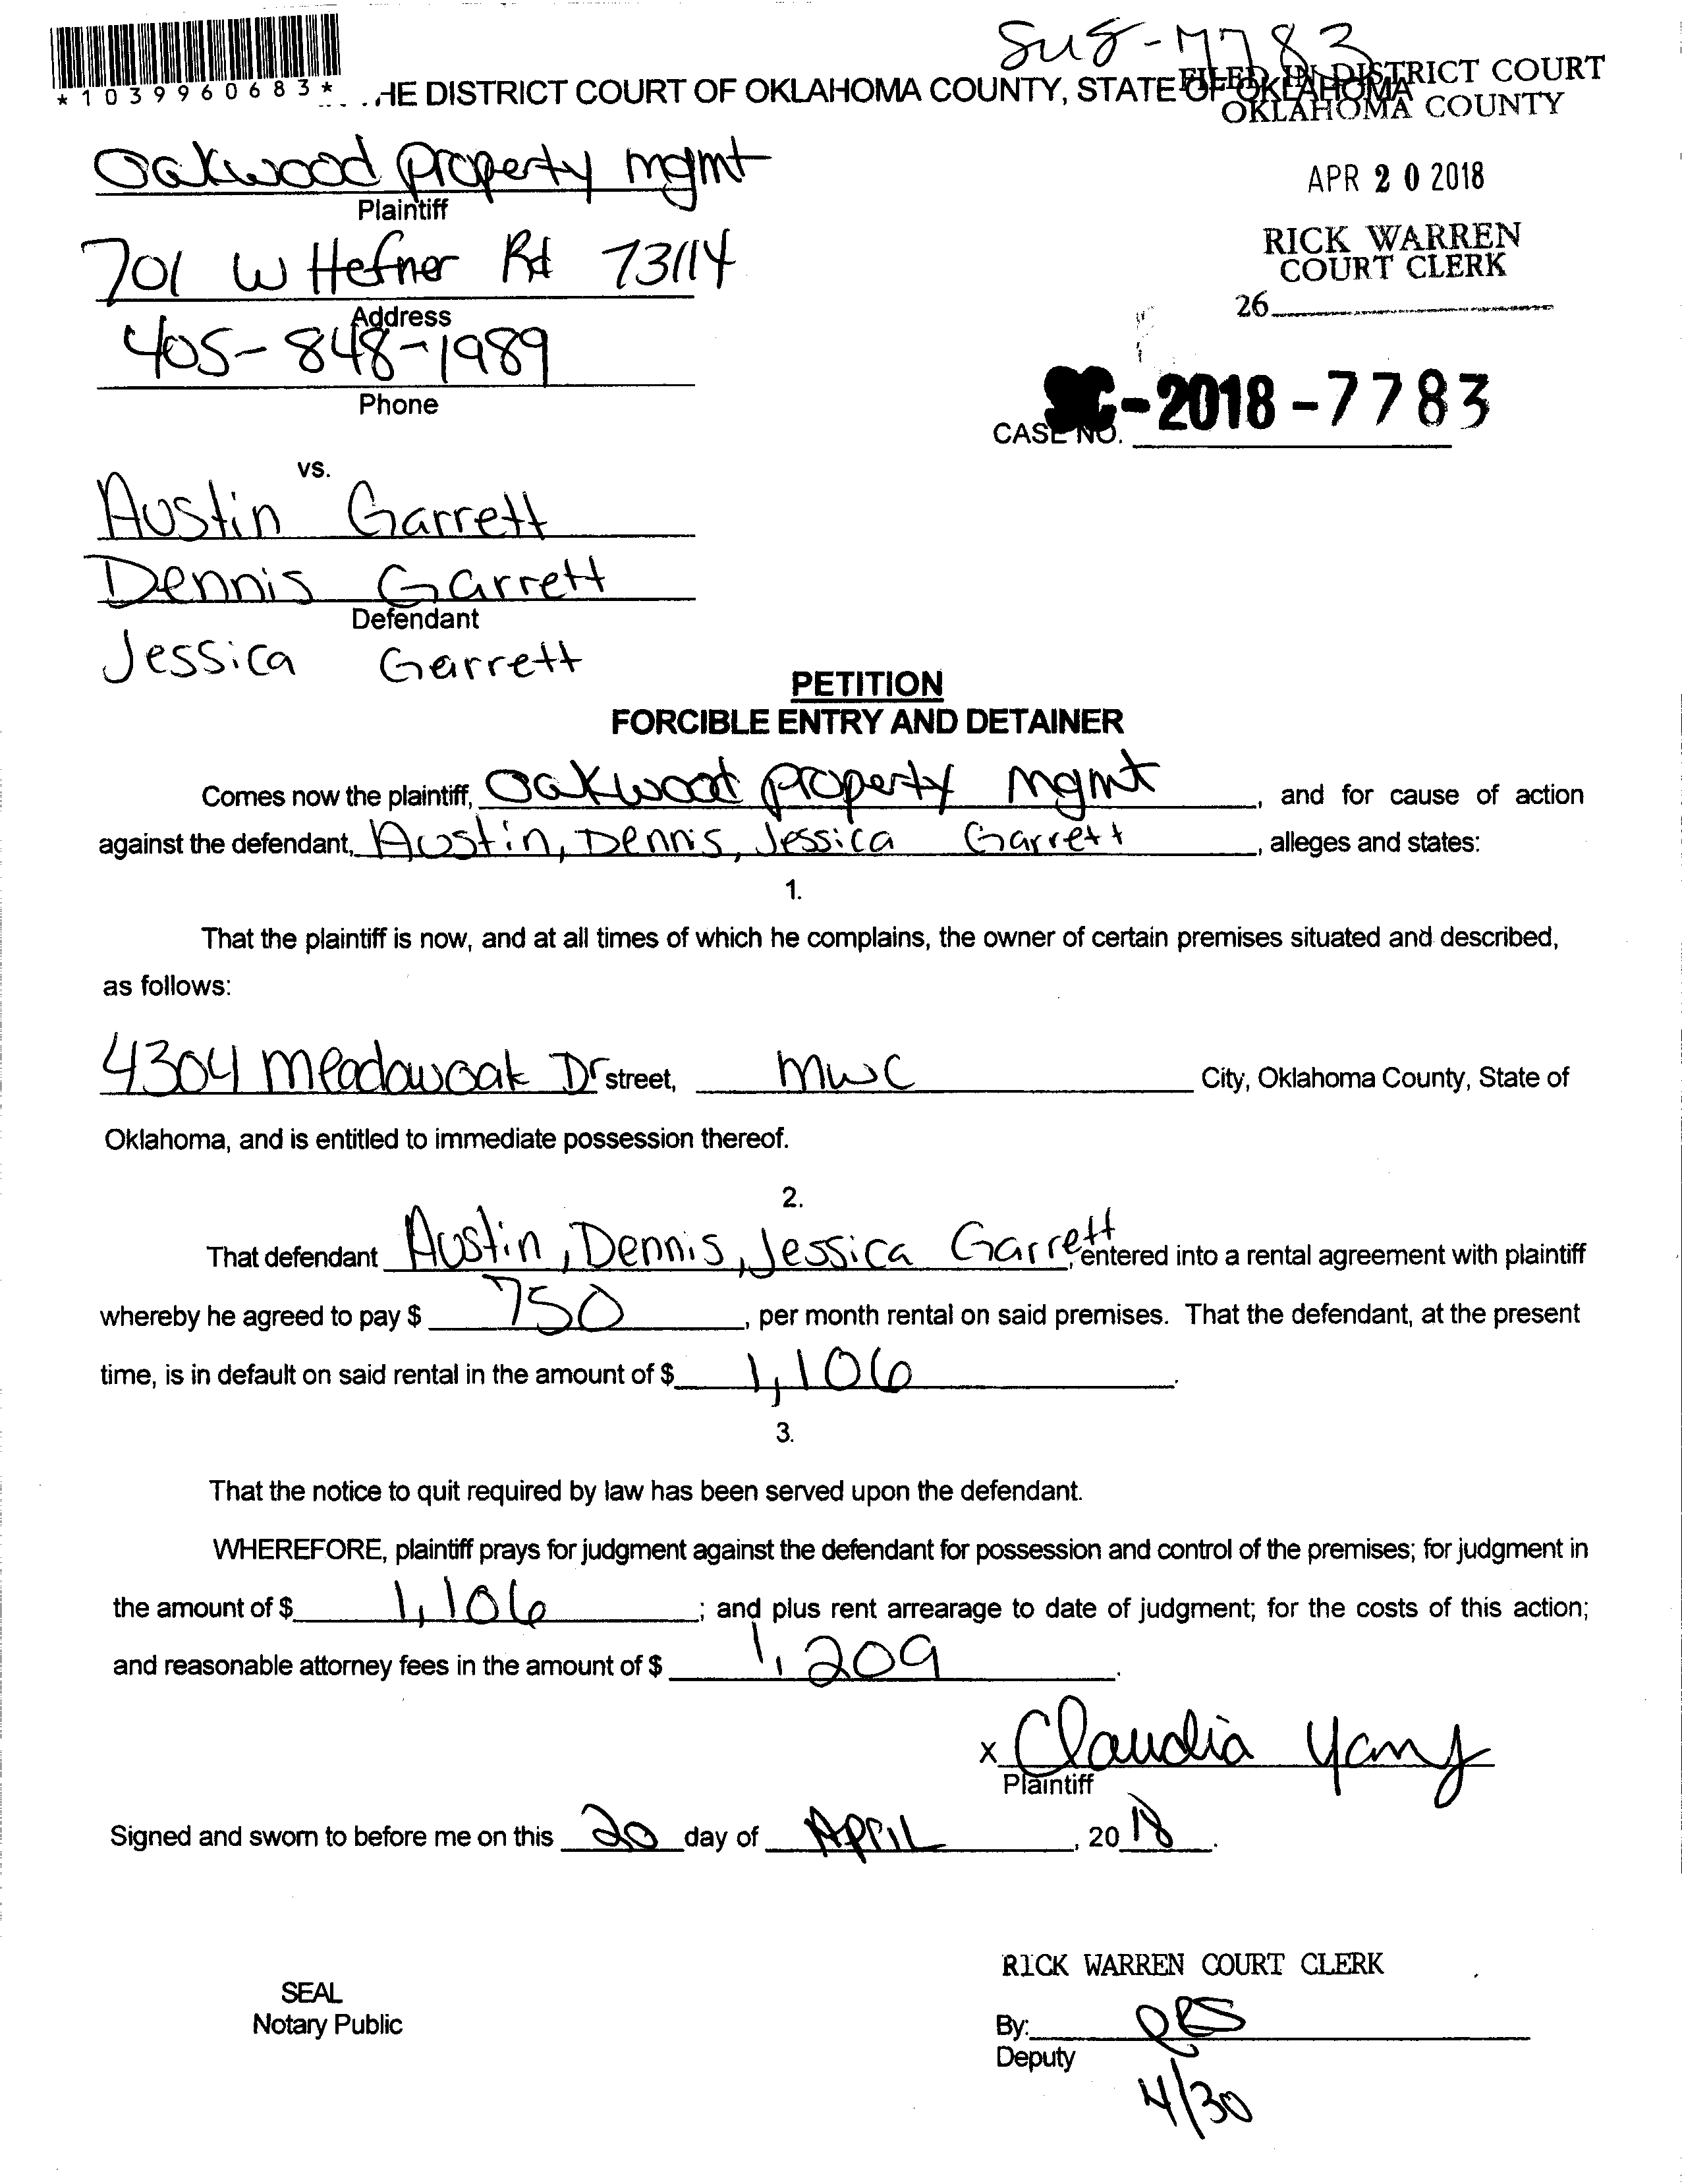 SUS-7783
*1039960683*
HE DISTRICT COURT OF OKLAHOMA COUNTY, STATE OF OKLAHOMA
FILED IN DISTRICT COURT
OKLAHOMA COUNTY
Oakwood Property mgmt
Plaintiff
APR 20 2018
RICK WARREN
COURT CLERK
26
701 W Hefner Rd 73114
Address
405-848-1989
Phone
CASE NO. SC-2018-7783
vs.
Austin Garrett
Dennis Garrett
Defendant
Jessica Garrett
PETITION
FORCIBLE ENTRY AND DETAINER
Comes now the plaintiff, Oakwood property mgmt, and for cause of action
against the defendant, Austin, Dennis, Jessica Garrett, alleges and states:
1.
That the plaintiff is now, and at all times of which he complains, the owner of certain premises situated and described,
as follows:
4304 Meadowoak Dr street, MWC City, Oklahoma County, State of
Oklahoma, and is entitled to immediate possession thereof.
2.
That defendant Austin, Dennis, Jessica Garrett, entered into a rental agreement with plaintiff
whereby he agreed to pay $ 750, per month rental on said premises. That the defendant, at the present
time, is in default on said rental in the amount of $ 1,106.
3.
That the notice to quit required by law has been served upon the defendant.
WHEREFORE, plaintiff prays for judgment against the defendant for possession and control of the premises; for judgment in
the amount of $ 1,106; and plus rent arrearage to date of judgment; for the costs of this action;
and reasonable attorney fees in the amount of $ 1,209.
x Claudia Yang
Plaintiff
Signed and sworn to before me on this 20 day of APRIL, 2018.
RICK WARREN COURT CLERK
SEAL
Notary Public
By:
Deputy
4/30